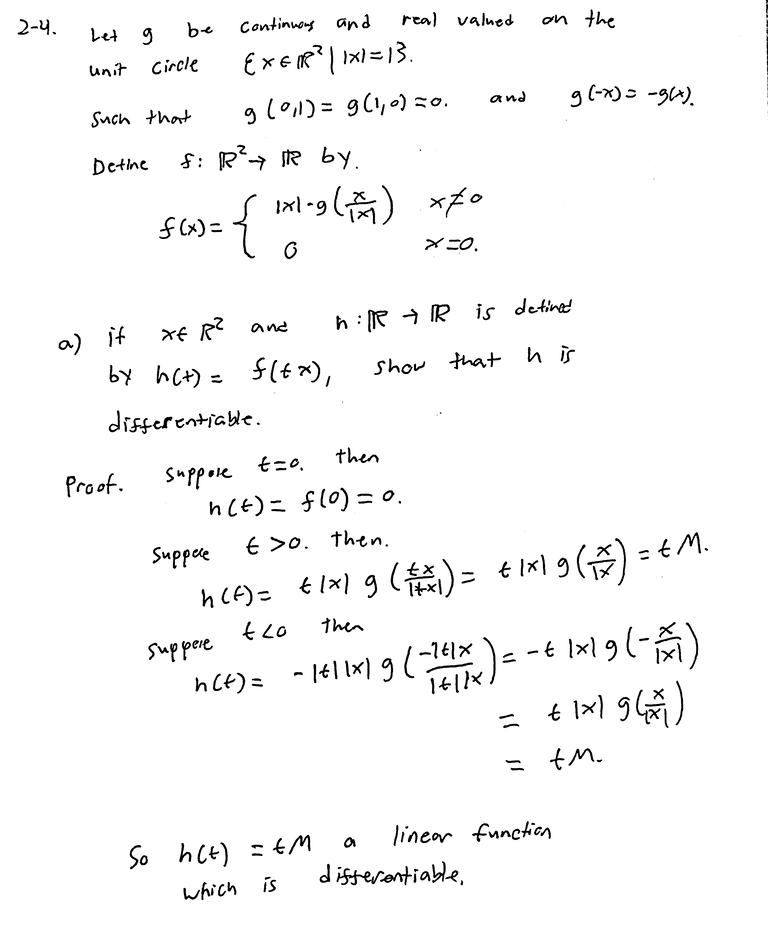 2-4. Let g be continuous and real valued on the
unit circle {x ∈ ℝ² | |x|=1}.
Such that g(0,1) = g(1,0) = 0. and g(-x) = -g(x).
Define f: ℝ² → ℝ by.
f(x) = { |x|·g(x/|x|) x≠0
0 x=0.
a) if x ∈ ℝ² and h: ℝ → ℝ is defined
by h(t) = f(tx), show that h is
differentiable.
Proof. Suppose t=0. then
h(t) = f(0) = 0.
Suppose t>0. then.
h(t) = t|x| g(tx/|tx|) = t|x| g(x/|x|) = tM.
Suppose t<0 then
h(t) = -|t||x| g(-|t|x/|t||x|) = -t|x| g(-x/|x|)
= t|x| g(x/|x|)
= tM.
So h(t) = tM a linear function
which is differentiable.